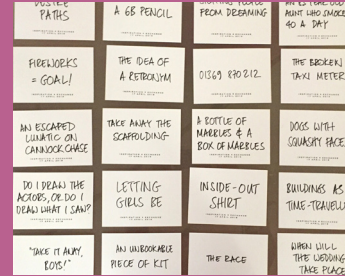 DESIRE
PATHS
A 6B PENCIL
PEOPLE
FROM DREAMING
AUNT WHO SMOKES
40 A DAY
FIREWORKS
= GOAL!
THE IDEA OF
A RETRONYM
01369 870212
THE BROKEN
TAXI METER
AN ESCAPED
LUNATIC ON
CANNOCK CHASE
TAKE AWAY THE
SCAFFOLDING
A BOTTLE OF
MARBLES & A
BOX OF MARBLES
DOGS WITH
SQUASHY FACES
DO I DRAW THE
ACTORS, OR DO I
DRAW WHAT I SAW?
LETTING
GIRLS BE
INSIDE-OUT
SHIRT
BUILDINGS AS
TIME-TRAVELL
"TAKE IT AWAY,
BOYS!"
AN UNBOOKABLE
PIECE OF KIT
THE RACE
WHEN WILL
THE WEDDING
TAKE PLACE